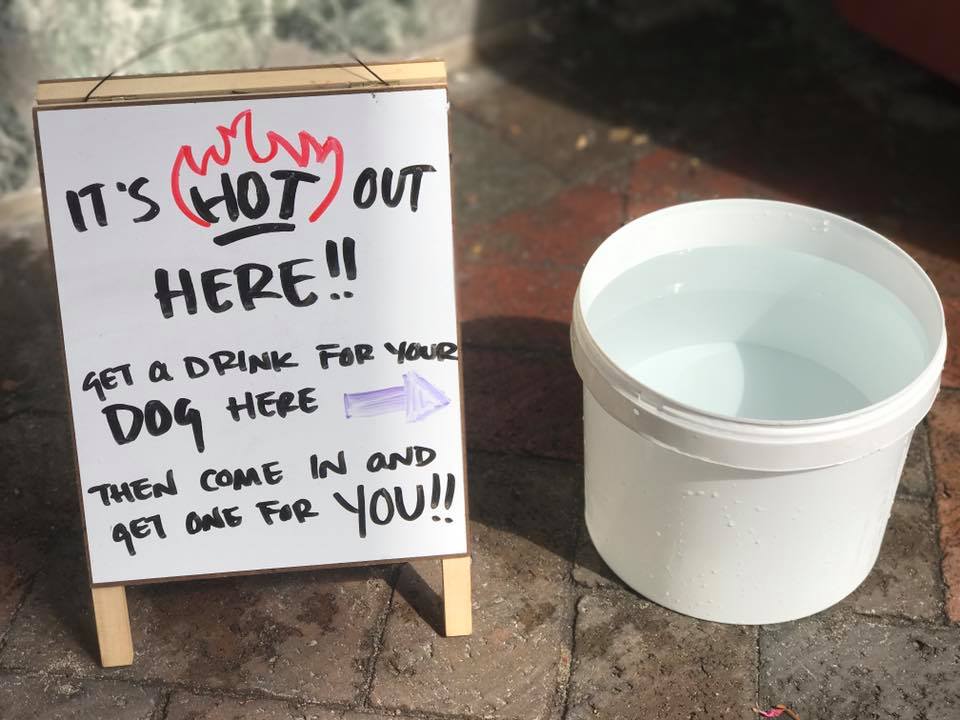 IT'S HOT OUT
HERE!!
GET a DRINK FOR YOUR
DOG HERE
THEN COME IN aND
GET ONE FOR YOU!!